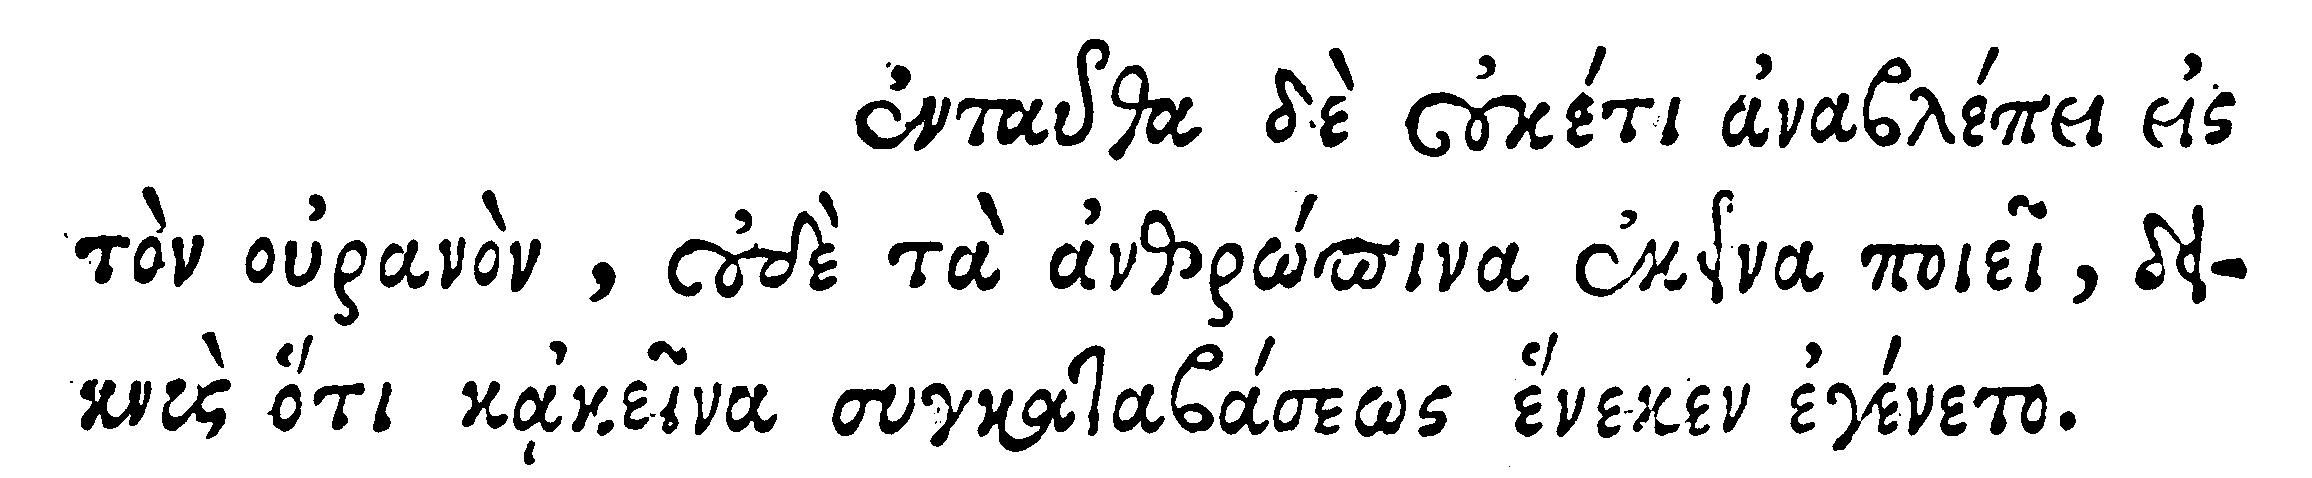 ἐνταῦθα δὲ οὐκέτι ἀναβλέπει εἰς
τὸν οὐρανὸν, οὐδὲ τὰ ἀνθρώπινα ἐκεῖνα ποιεῖ, δει-
κνὺς ὅτι κᾀκεῖνα συγκαταβάσεως ἕνεκεν ἐγένετο.